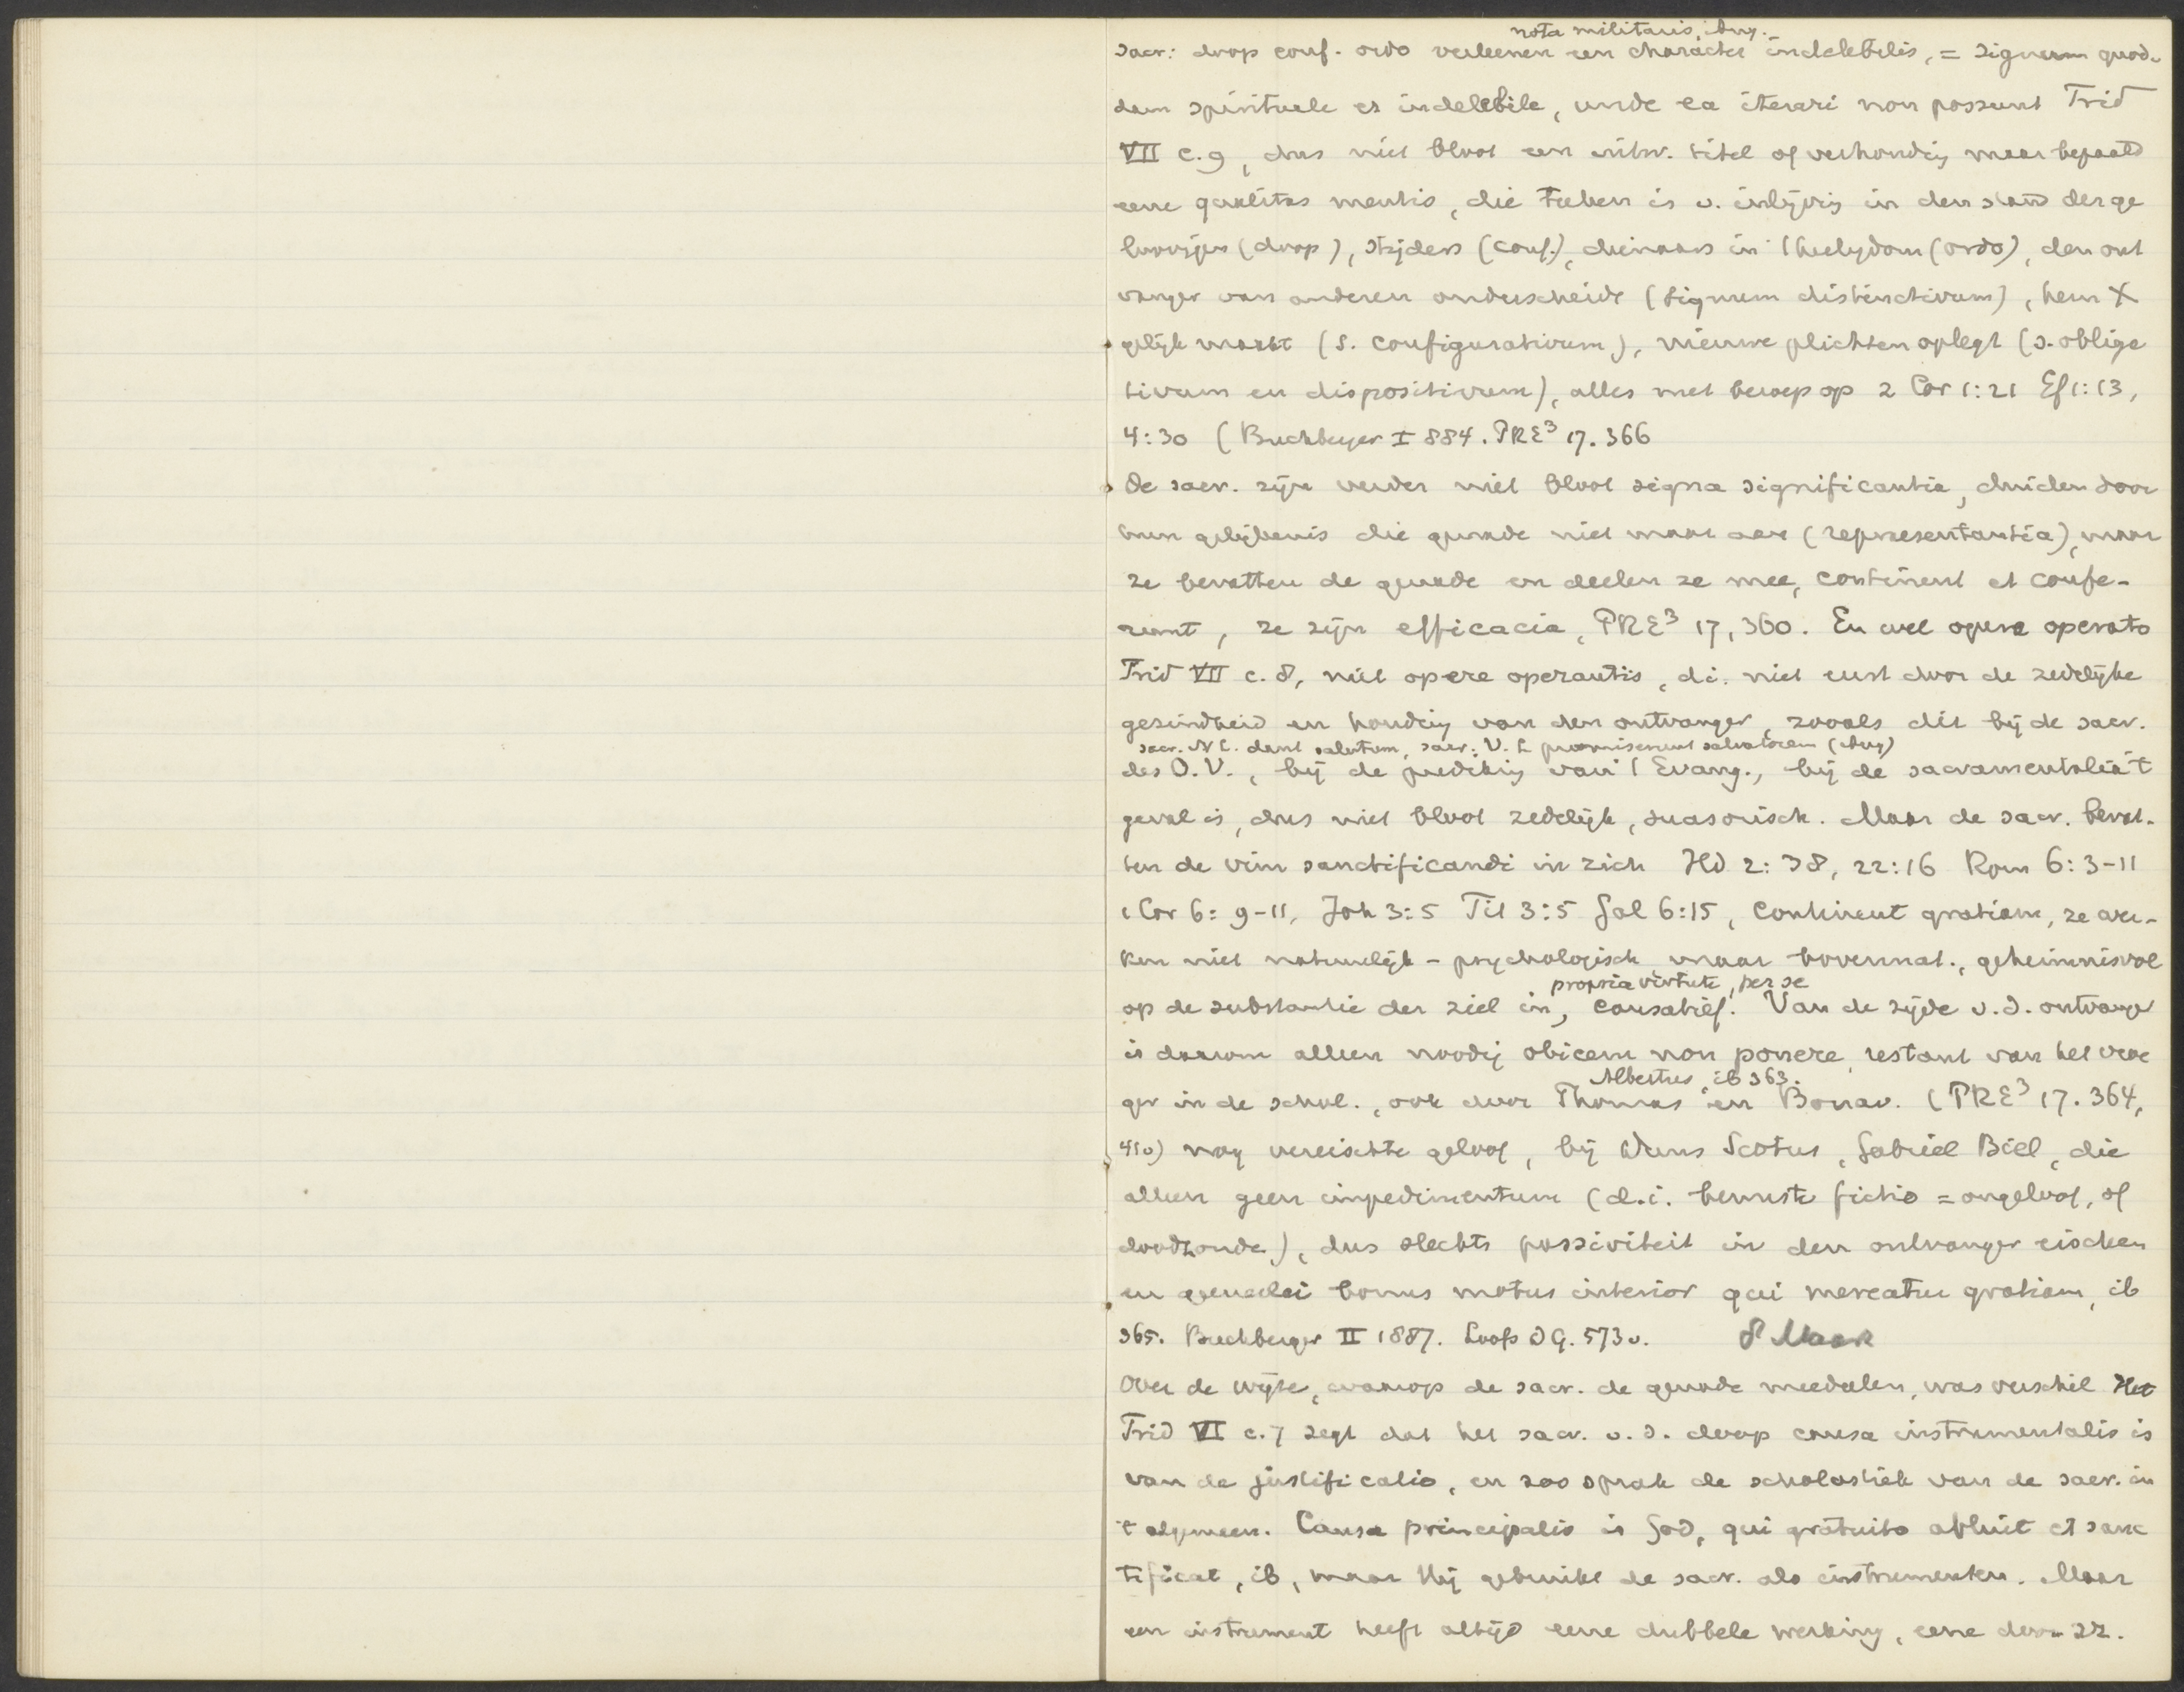 nota militaris, Aug.
sacr: doop conf. ordo verleenen een character indelebilis, = signum quod-
dam spirituale et indelebile, unde ea iterari non possunt Trid
VII c. 9, dus niet bloot een uitw. titel of verhoudig maar bepaald
eene qualitas mentis, die teeken is v. inlijvig in den stand der ge
loovigen (doop), strijders (conf.), dienaars in 't heiligdom (ordo), den ont
vanger van anderen onderscheidt (signum distinctivum), hem X
gelijk maakt (s. configurativum), nieuwe plichten oplegt (s. obliga
tivum en dispositivum), alles met beroep op 2 Cor 1:21 Ef 1:13,
4:30 (Buchberger I 884. PRE³ 17. 366
De sacr. zijn verder niet bloot signa significantia, duiden door
hun gelijkenis die genade niet maar aan (representantia), maar
ze bevatten de genade en deelen ze mee, continent et confe-
runt, ze zijn efficacia, PRE³ 17, 360. En wel opere operato
Trid VII c. 8, niet opere operantis, d.i. niet eerst door de zedelijke
gezindheid en houdig van den ontvanger, zooals dit bij de sacr.
sacr. N T. dant salutem, sacr. V. T promiserunt salvatorem (Aug)
des O.V., bij de predikig van 't Evang., bij de sacramentalia 't
geval is, dus niet bloot zedelijk, suasorisch. Maar de sacr. bevat-
ten de vim sanctificandi in zich Hd 2:38, 22:16 Rom 6:3-11
1 Cor 6: 9-11, Joh 3:5 Tit 3:5 Gal 6:15, continent gratiam, ze wer-
ken niet natuurlijk - psychologisch maar bovennat., geheimnisvol
propria virtute, per se
op de substantie der ziel in, causatief. Van de zijde v. d. ontvanger
is daarom alleen noodig obicem non ponere, restant van het vroe
Albertus, ib 363.
ger in de schol., ook door Thomas en Bonav. (PRE³ 17. 364,
410) nog vereischte geloof, bij Duns Scotus, Gabriel Biel, die
alleen geen impedimentum (d.i. bewuste fictio = ongeloof, of
doodzonde), dus slechts passiviteit in den ontvanger eischen
en generlei bonus motus interior qui mereatur gratiam, ib
365. Buchberger II 1887. Loofs DG. 573 v. 8 Maar
Over de wijze, waarop de sacr. de genade meedeelen, was verschil Het
Trid VI c. 7 zegt dat het sacr. v. d. doop causa instrumentalis is
van de justificatio, en zoo sprak de scholastiek van de sacr. in
't algemeen. Causa principalis is God, qui gratuito abluit et sanc
tificat, ib, maar Hij gebruikt de sacr. als instrumenten. Maar
een instrument heeft altijd eene dubbele werking, eene door zz.